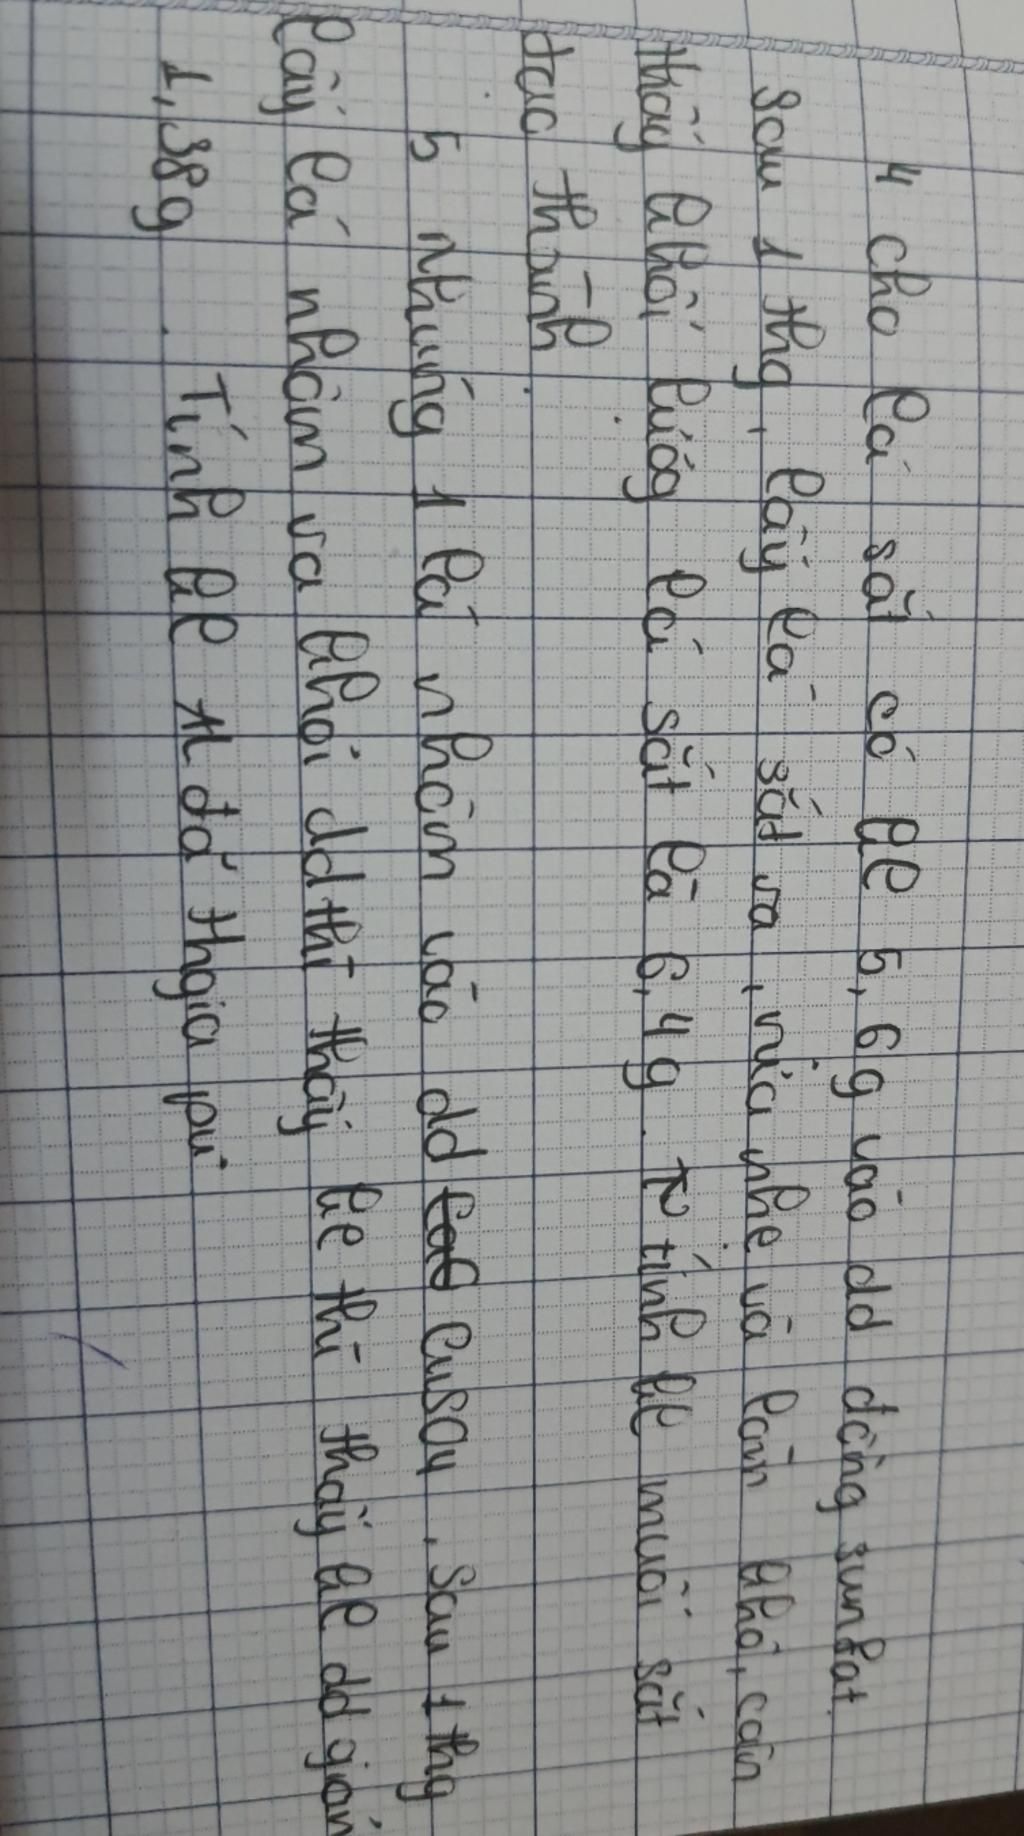 4 cho lá sắt có kl 5,6g vào dd đồng sunfat
Sau 1 thg, lấy lá sắt ra, rửa nhẹ và làm khô, cân
thấy khối lượg lá sắt là 6,4g. tính kl muối sắt
đạc thành.
5 nhúng 1 lá nhôm vào dd CuSO4. Sau 1 thg
lấy lá nhôm ra khỏi dd thì thấy kl thì thấy kl dd giảm
1,38g. Tính kl Al đã thgia pư